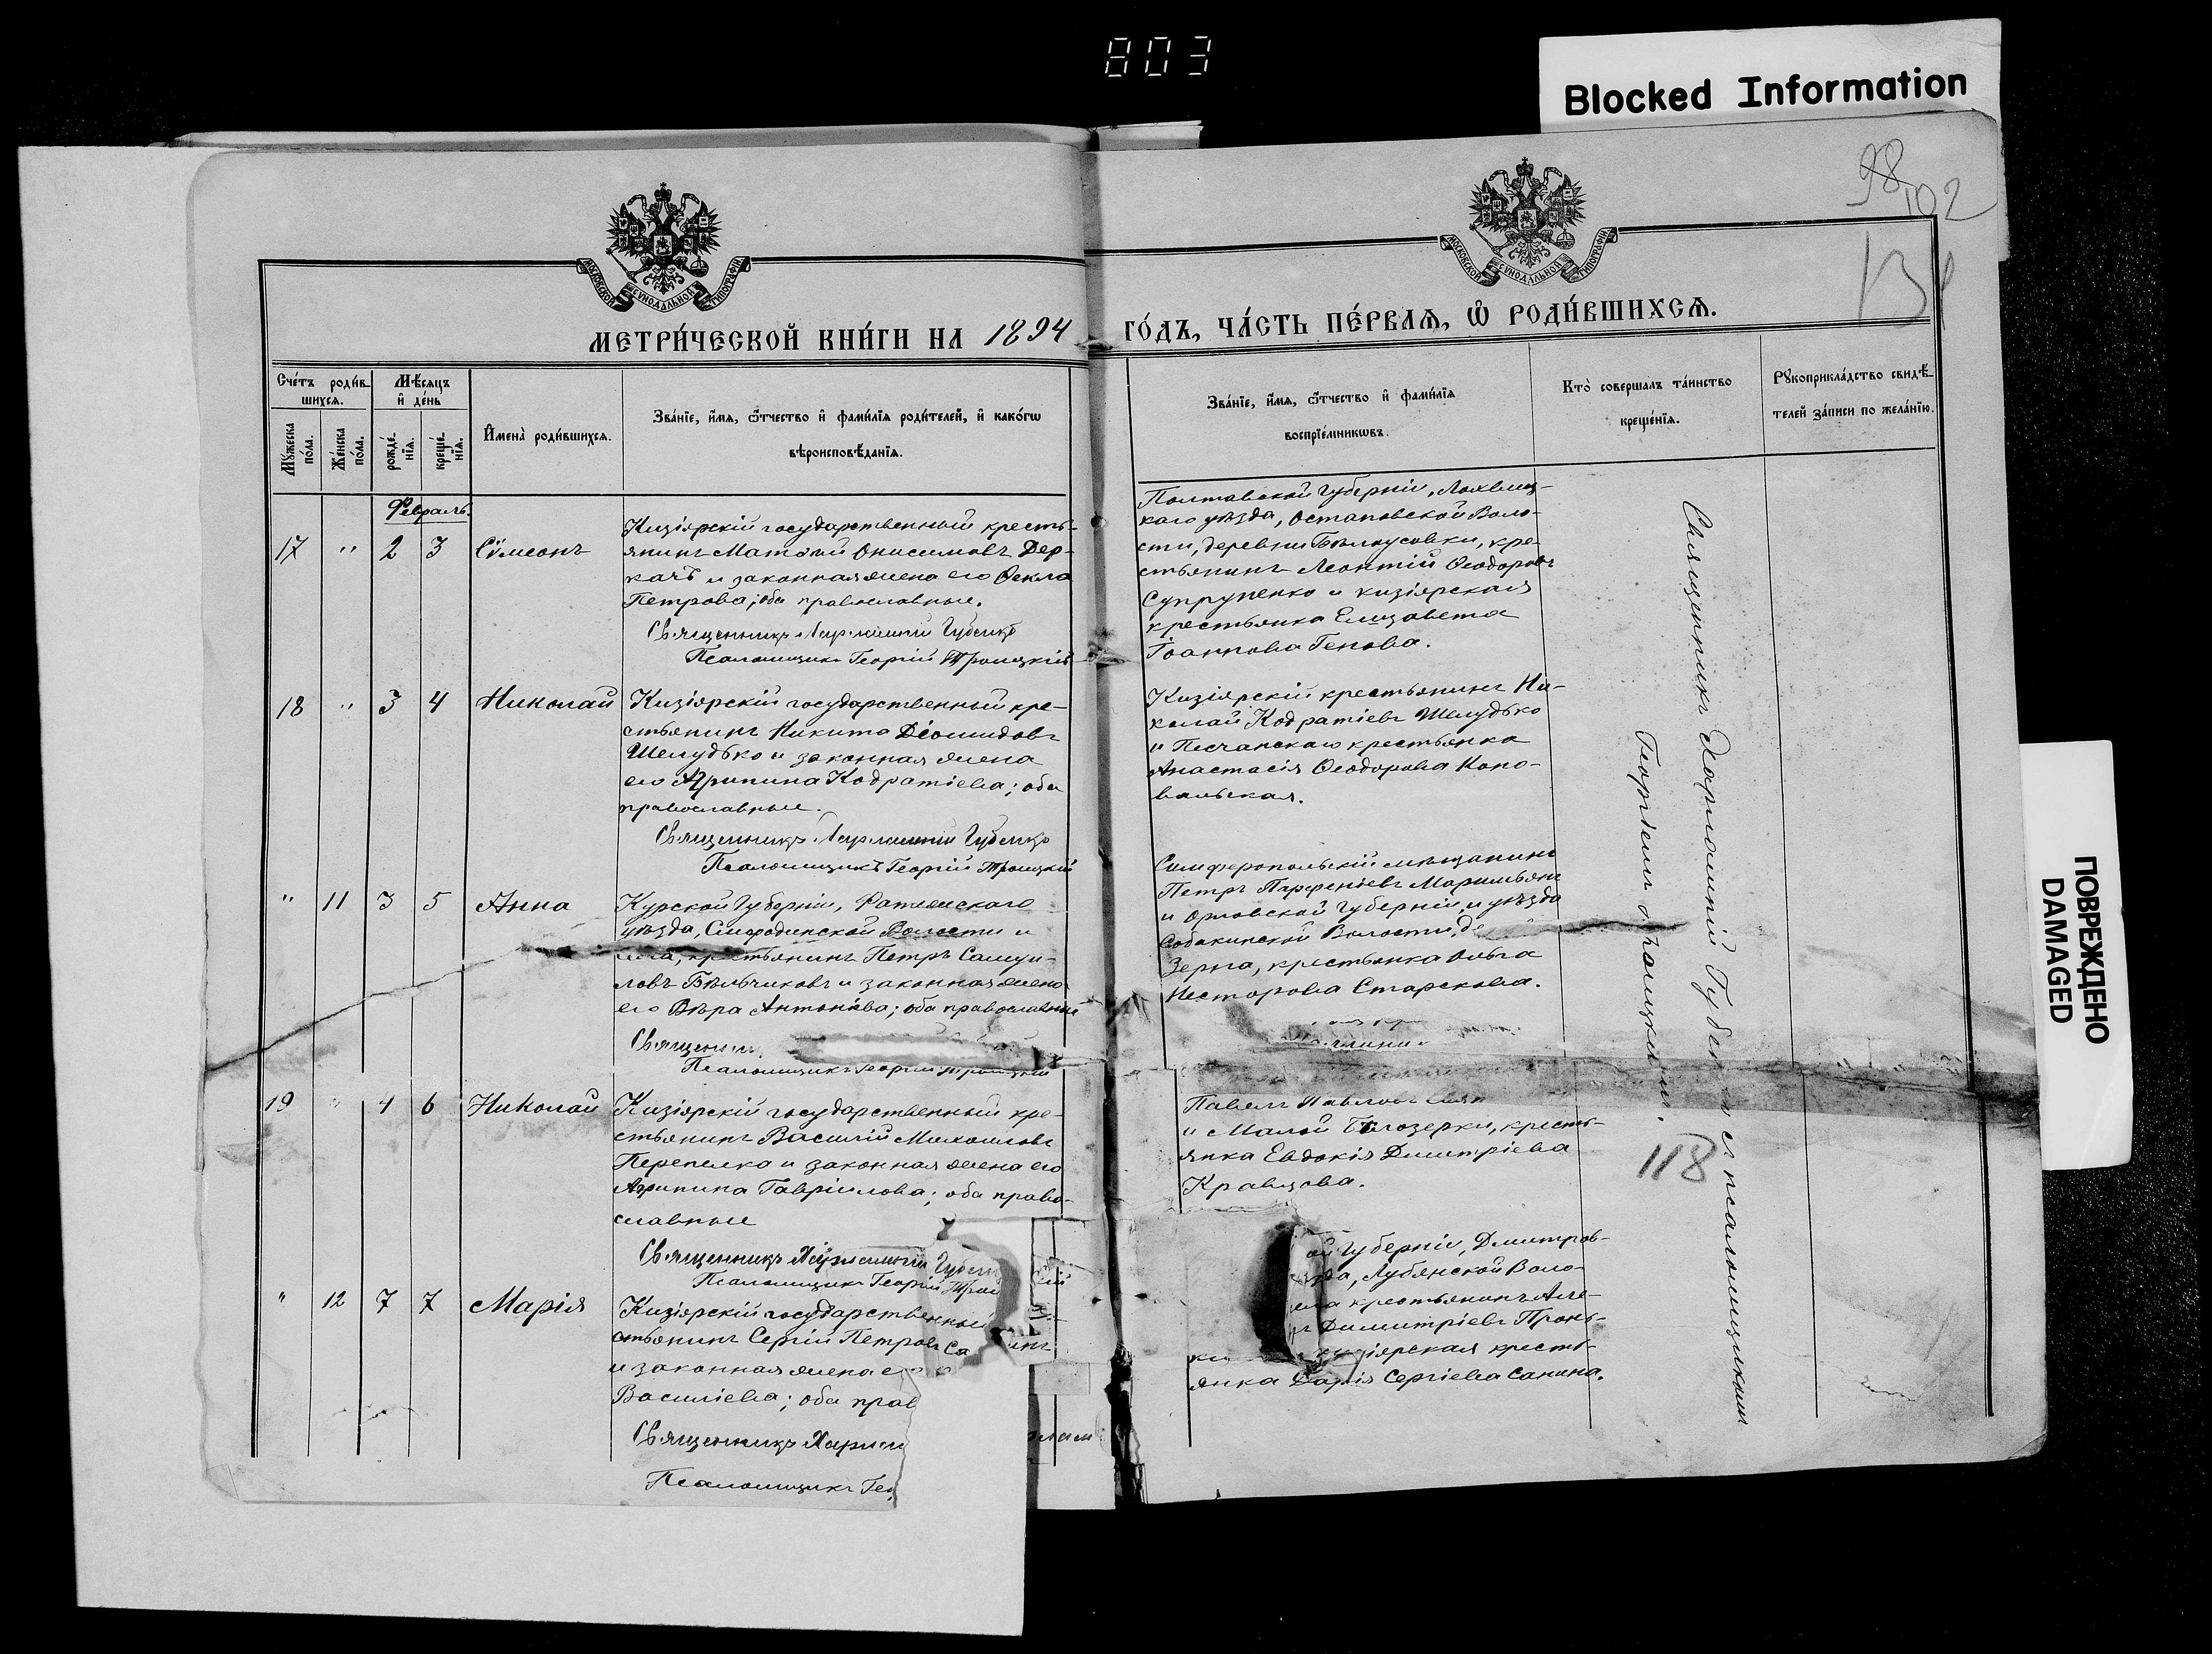 803
Blocked Information
98
102
МОСКОВСКОЙ СѴНОДАЛЬНОЙ ТИПОГРАФІИ
МОСКОВСКОЙ СѴНОДАЛЬНОЙ ТИПОГРАФІИ
МЕТРИ́ЧЕСКОЙ КНИ́ГИ НА 1894 ГО́ДЪ, ЧА́СТЬ ПЕ́РВАѦ, Ѽ РОДИ́ВШИХСѦ.
Сче́тъ роди́вшихсѧ.
Мѣ́сѧцъ и҆ де́нь
Мꙋ́жеска по́ла.
Же́нска по́ла.
рожде́нїѧ.
креще́нїѧ.
И҆мена̀ роди́вшихсѧ.
Зва́нїе, и҆́мѧ, ѻ҆́тчество и҆ фами́лїѧ роди́телей, и҆ како́гѡ
вѣроисповѣ́данїѧ.
Зва́нїе, и҆́мѧ, ѻ҆́тчество и҆ фами́лїѧ
воспрїе́мникѡвъ.
Кто̀ соверша́лъ та́инство
креще́нїѧ.
Рꙋкоприкла́дство свидѣ́телей за́писи по жела́нїю.
Февраль.
17 " 2 3 Сѵмеонъ
Кизіярскій государственный кресть-
янинъ Матѳій Онисимовъ Дер-
качъ и законная жена его Ѳекла
Петрова; оба православные.
Священникъ Харлампій Губенко
Псаломщикъ Георгій Троицкій
Полтавской губерніи, Лохвиц-
каго уѣзда, Остаповской Воло-
сти, деревни Бѣлоусовки, кре-
стьянинъ Леонтій Ѳеодоровъ
Супруненко и кизіярская
крестьянка Елизавета
Іоаннова Генова.
18 " 3 4 Николай
Кизіярскій государственный кре-
стьянинъ Никита Діомидовъ
Шелудько и законная жена
его Агрипина Кодратіева; оба
православные.
Священникъ Харлампій Губенко
Псаломщикъ Георгій Троицкій
Кизіярскій крестьянинъ Ни-
колай Кодратіевъ Шелудько
и Песчанскаго крестьянка
Анастасія Ѳеодорова Коно-
вальская.
" 11 3 5 Анна
Курской губерніи, Фатежскаго
уѣзда, Смородинской Волости и
села, крестьянинъ Петръ Самуи-
ловъ Бѣльчиковъ и законная жена
его Вѣра Антонова; оба православные
Священни
Псаломщикъ Георгій Троицкій
Симферопольскій мѣщанинъ
Петръ Парфеніевъ
и Орловской губерніи, и уѣзда
Собакинской Волости, д
Зерна, крестьянка Ольга
Несторова Старкова.
19 " 4 6 Николай
Кизіярскій государственный кре-
стьянинъ Василій Михаиловъ
Перепелка и законная жена его
Агрипина Гавріилова; оба право-
славные
Священникъ Харлампій Губенк
Псаломщикъ Георгій Трои
Павелъ Павловъ
и Малой Бѣлозерки, кресть-
янка Евдокія Димитріева
Кравцова.
" 12 7 7 Марія
Кизіярскій государственный
стьянинъ Сергій Петровъ Са
и законная жена е
Василіева; оба прав
Священникъ Харлам
Псаломщикъ Гео
ой губерніи, Дмитров-
зда, Лубянской Воло-
ела крестьянинъ Але-
Димитріевъ Пронь-
кизіярская кресть-
янка Дарія Сергіева Санина.
Священникъ Харлампій Губен и съ псаломщикомъ
Георгіемъ Троицкимъ.
118
ПОВРЕЖДЕНО
DAMAGED